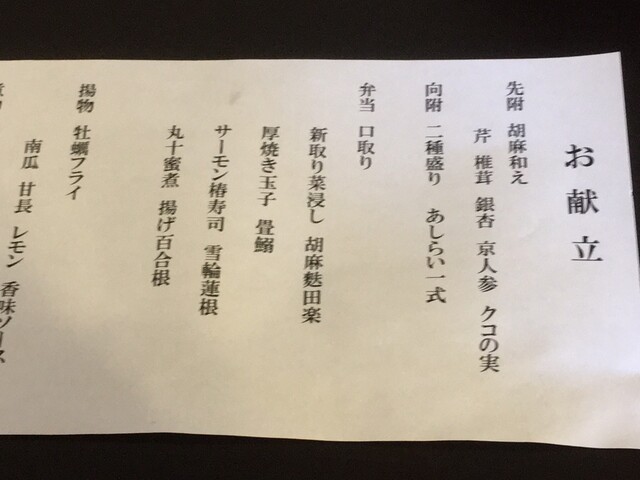 お献立
先附 胡麻和え
芹 椎茸 銀杏 京人参 クコの実
向附 二種盛り あしらい一式
弁当 口取り
新取り菜浸し 胡麻麩田楽
厚焼き玉子 畳鰯
サーモン椿寿司 雪輪蓮根
丸十蜜煮 揚げ百合根
揚物 牡蠣フライ
南瓜 甘長 レモン 香味ソース